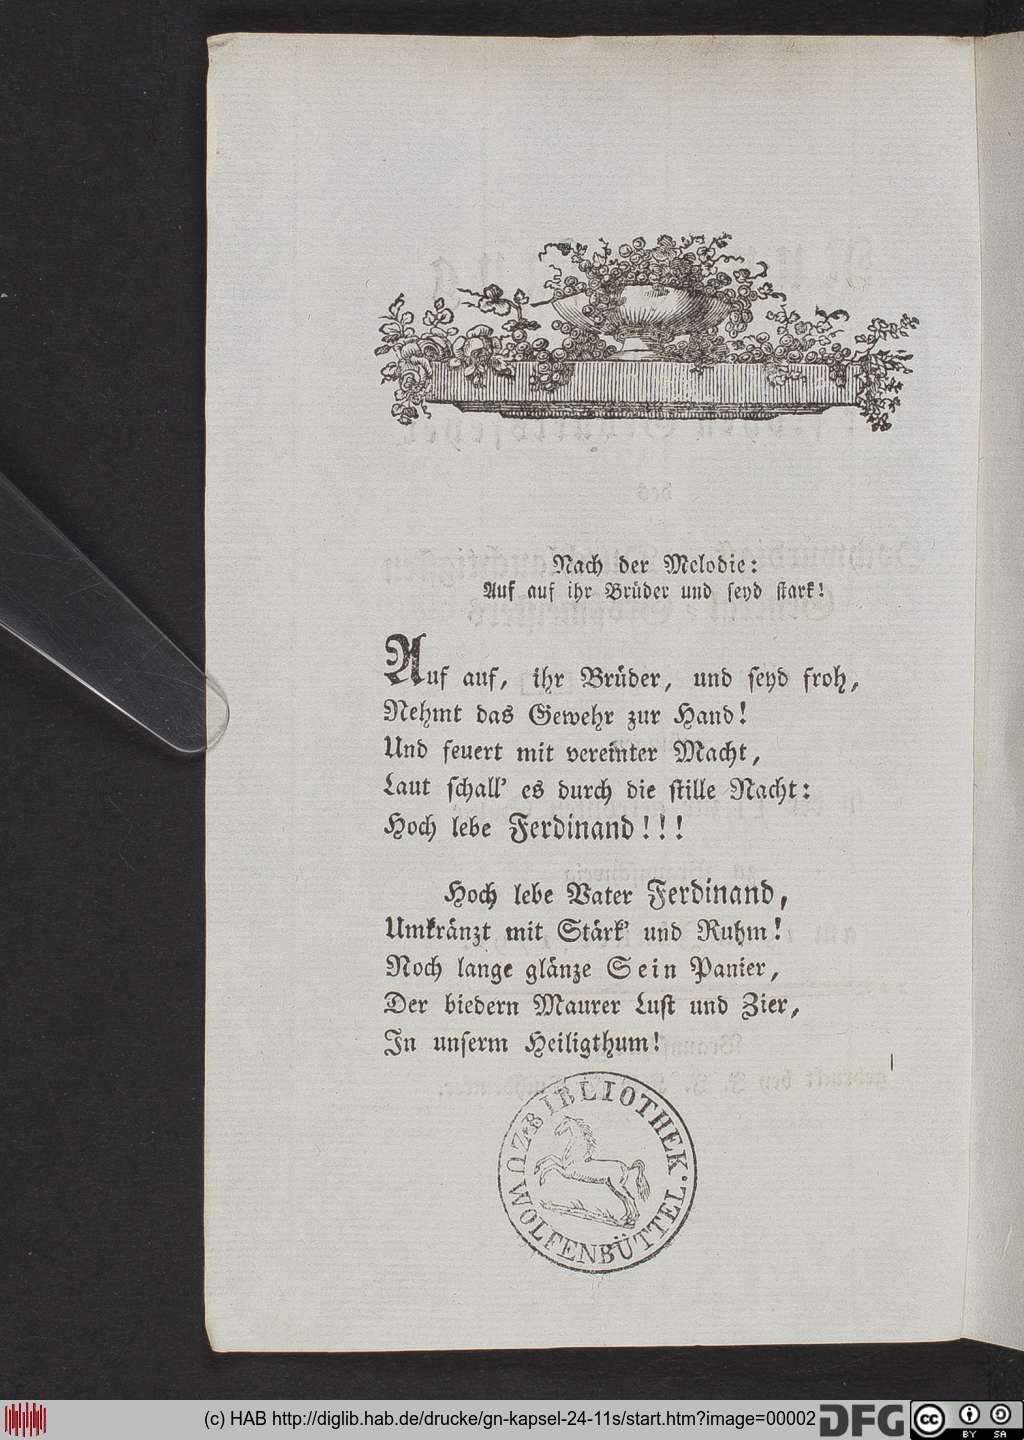 Nach der Melodie:
Auf auf ihr Brüder und seyd stark!
Auf auf, ihr Brüder, und seyd froh,
Nehmt das Gewehr zur Hand!
Und feuert mit vereinter Macht,
Laut schall' es durch die stille Nacht:
Hoch lebe Ferdinand!!!
Hoch lebe Vater Ferdinand,
Umkränzt mit Stärk' und Ruhm!
Noch lange glänze Sein Panier,
Der biedern Maurer Lust und Zier,
In unserm Heiligthum!
BIBLIOTHEK.
ZU WOLFENBÜTTEL.
(c) HAB http://diglib.hab.de/drucke/gn-kapsel-24-11s/start.htm?image=00002
DFG
cc BY SA